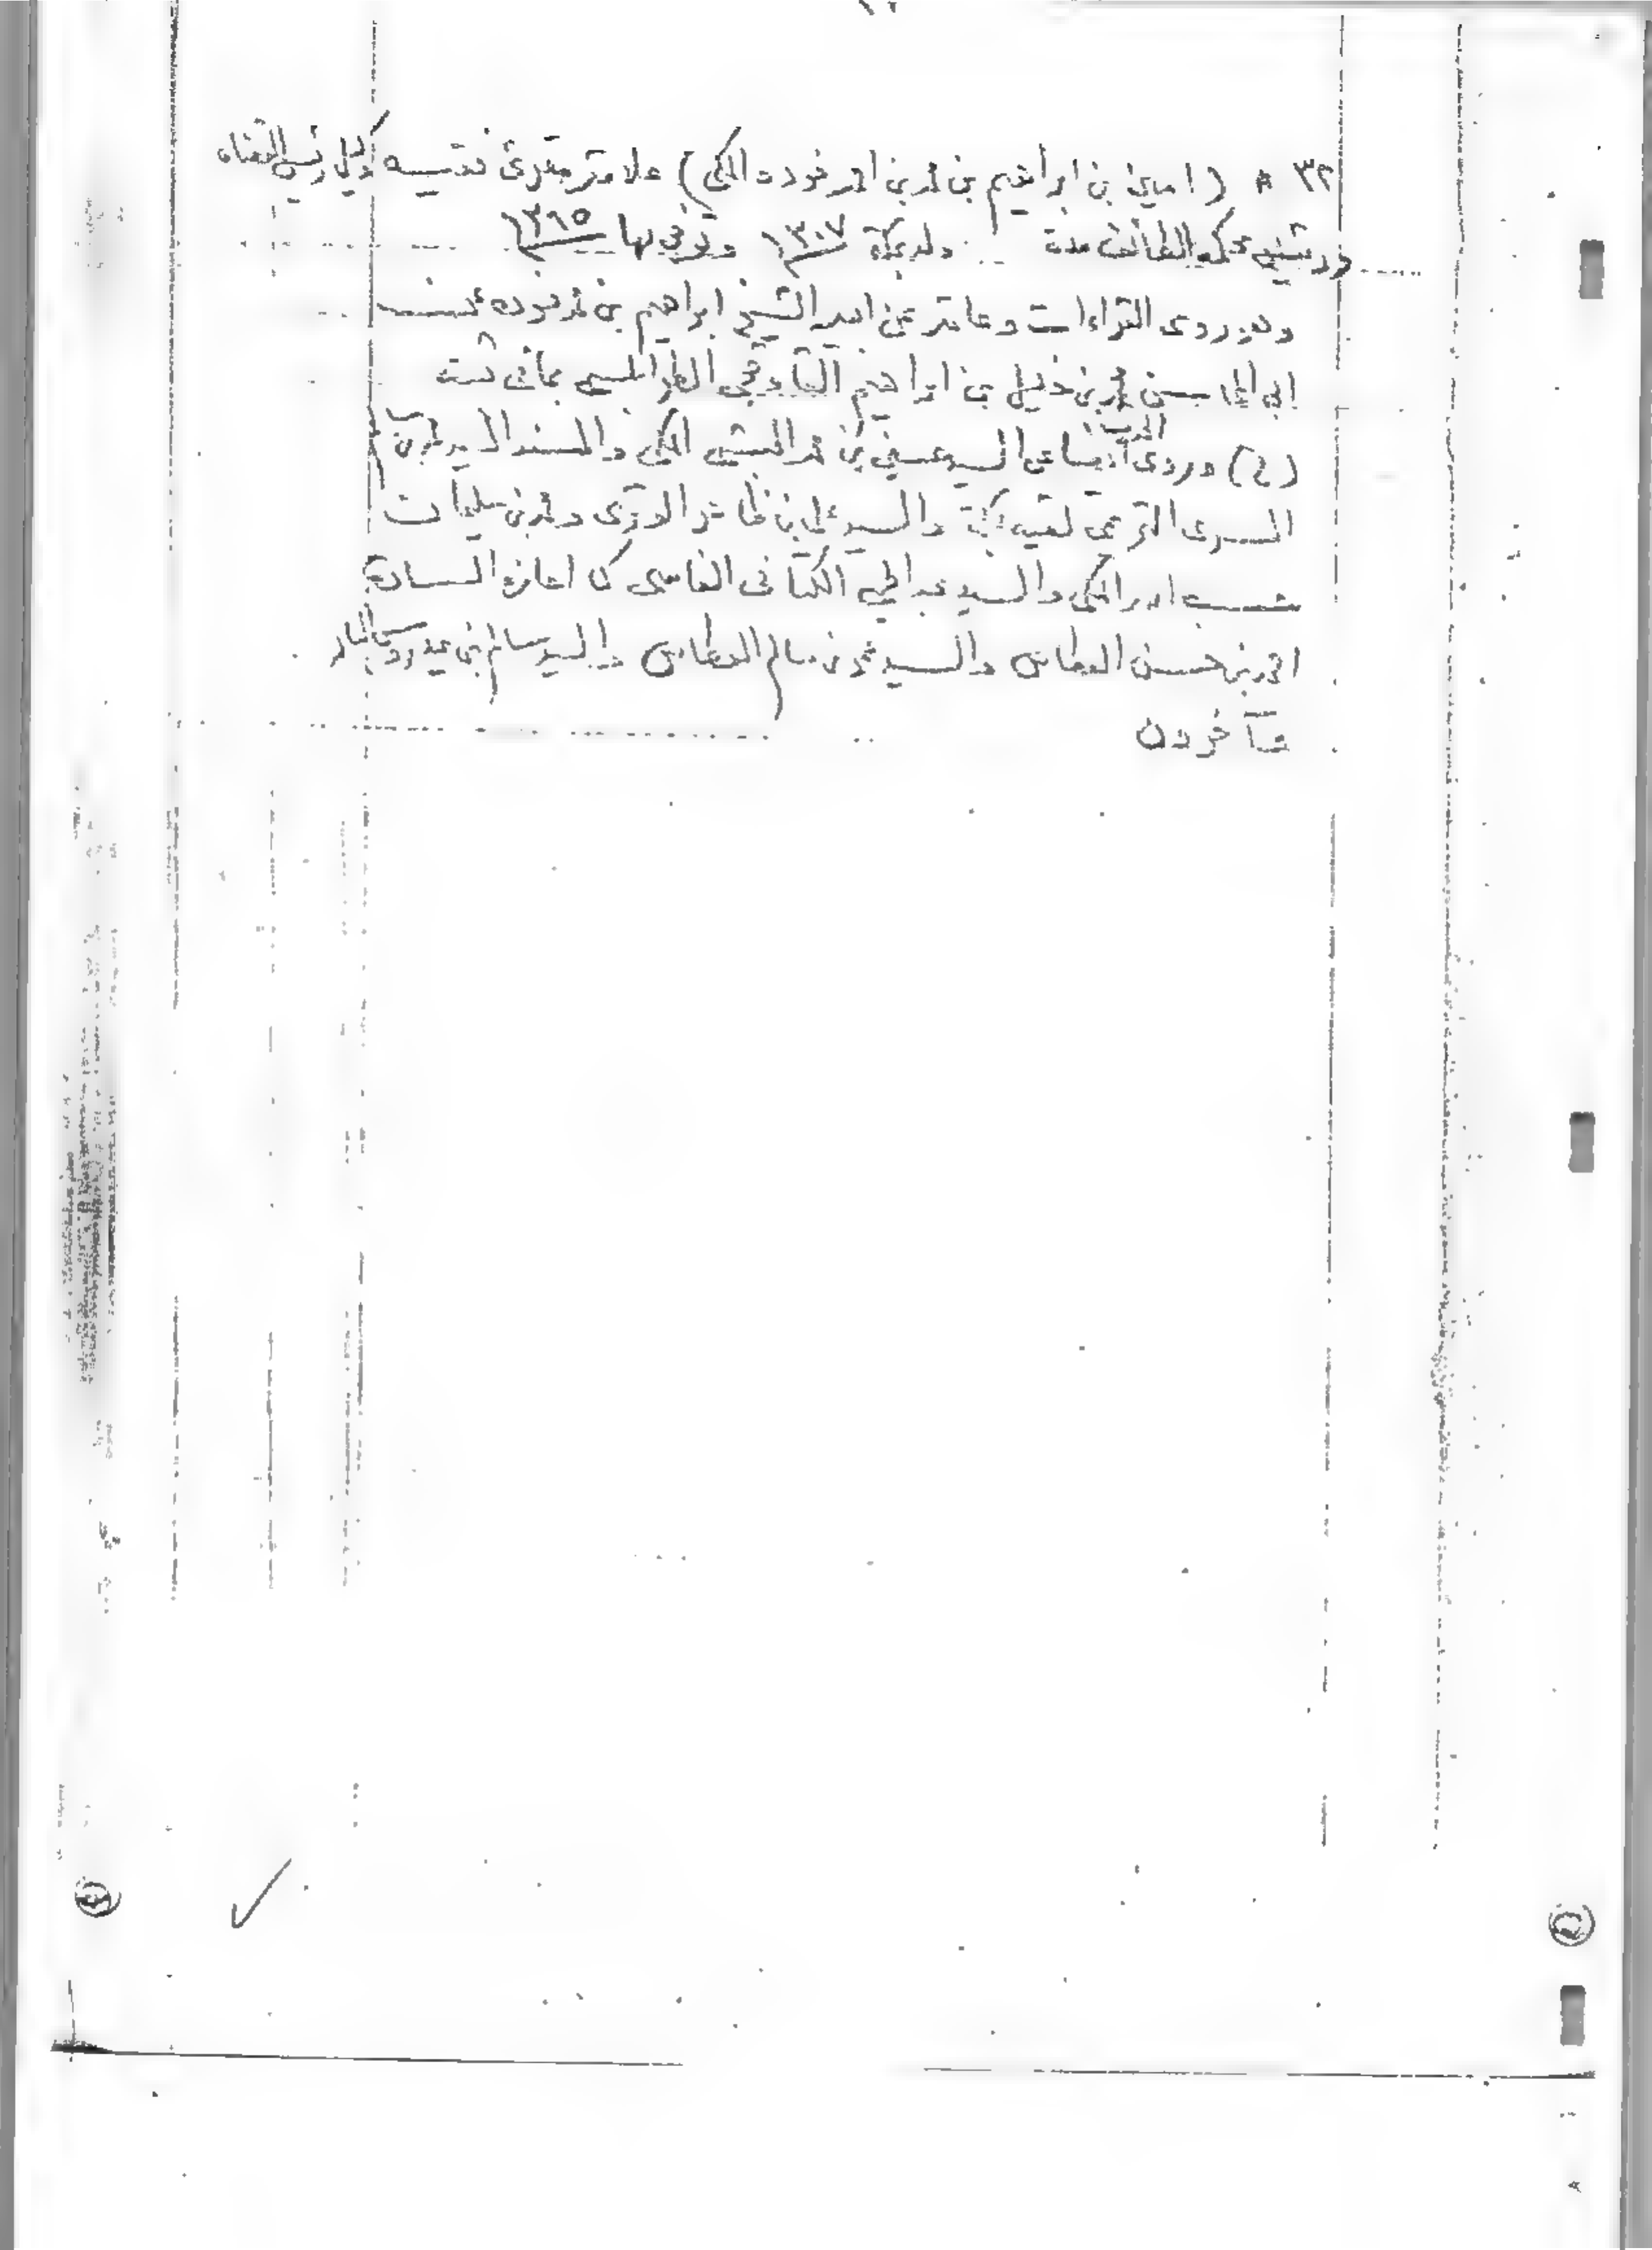 ٣٢ * (امين بن ابراهيم بن محمد بن احمد فوده المكي) علامة مقرئ فقيه وكيل رئيس القضاة
ورئيس محكمة الطائف مدة ولد بمكة ١٣٠٧ وتوفي بها ١٣٦٥
وهو روى القراءات وعامة عن ابيه الشيخ ابراهيم بن محمد فوده عن
ابي المحاسن محمد بن خليل بن ابراهيم القاوقجي الطرابلسي بما في ثبته
(ح) وروى ايضا عن السيد حسين بن محمد الحبشي المكي والمسند السيد
السيد علي بن ظاهر الوتري ومحمد بن سليمان
حسب الله المكي والسيد عبد الحي الكتاني الفاسي كما اجازه السادة
احمد بن حسن العطاس والسيد محمد بن سالم العطاس والسيد سالم بن عيدروس البار
وآخرون